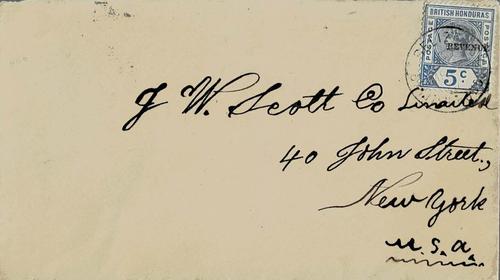 BRITISH HONDURAS
POSTAGE
POSTAGE
REVENUE
5 C
J W. Scott Co Limited
40 John Street,
New York
U.S.A.